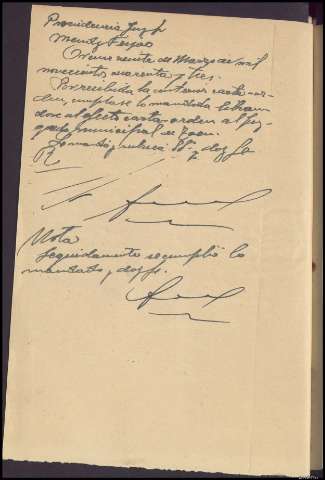 Providencia Juez
Mendez Feijoo
Orense veinte de Marzo de mil
novecientos cuarenta y tres.
Por recibida la anterior carta or-
den, cumplase lo mandado libran
dose al efecto carta-orden al Juz-
gado municipal de
Lo mandó y rubrica Sª. y doy fe
Nota
Seguidamente se cumplió lo
mandado, doy fe.